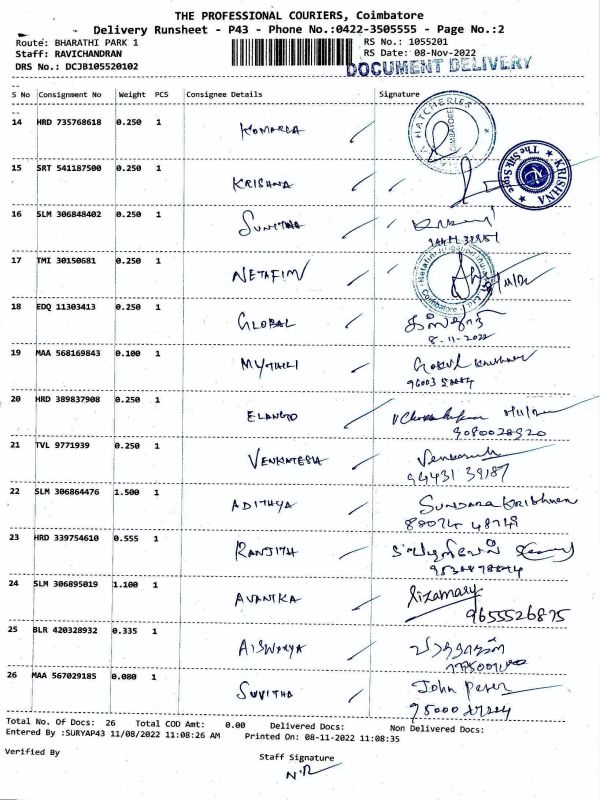 THE PROFESSIONAL COURIERS, Coimbatore
Delivery Runsheet - P43 - Phone No.:0422-3505555 - Page No.:2
Route: BHARATHI PARK 1 RS No.: 1055201
Staff: RAVICHANDRAN RS Date: 08-Nov-2022
DRS No.: DCJB105520102 DOCUMENT DELIVERY
S No Consignment No Weight PCS Consignee Details Signature
14 HRD 735768618 0.250 1 HATCHERIES COIMBATORE
15 SRT 541187500 0.250 1 KRISHNA KRISHNA The Silk Store
16 SLM 306848402 0.250 1
17 TMI 30150681 0.250 1 NETAFIM Coimbatore
18 EDQ 11303413 0.250 1 GLOBAL
8-11-2022
19 MAA 568169843 0.100 1 MYTHILI
20 HRD 389837908 0.250 1 ELANGO
9080028920
21 TVL 9771939 0.250 1
94431 39187
22 SLM 306864476 1.500 1 ADITHYA Sundara Krishnan
23 HRD 339754610 0.555 1 RANJITH
24 SLM 306895019 1.100 1 AVANIKA lizamary
9655526875
25 BLR 420328932 0.335 1
26 MAA 567029185 0.080 1 SUVITHA John Peter
Total No. Of Docs: 26 Total COD Amt: 0.00 Delivered Docs: Non Delivered Docs:
Entered By :SURYAP43 11/08/2022 11:08:26 AM Printed On: 08-11-2022 11:08:35
Verified By
Staff Signature